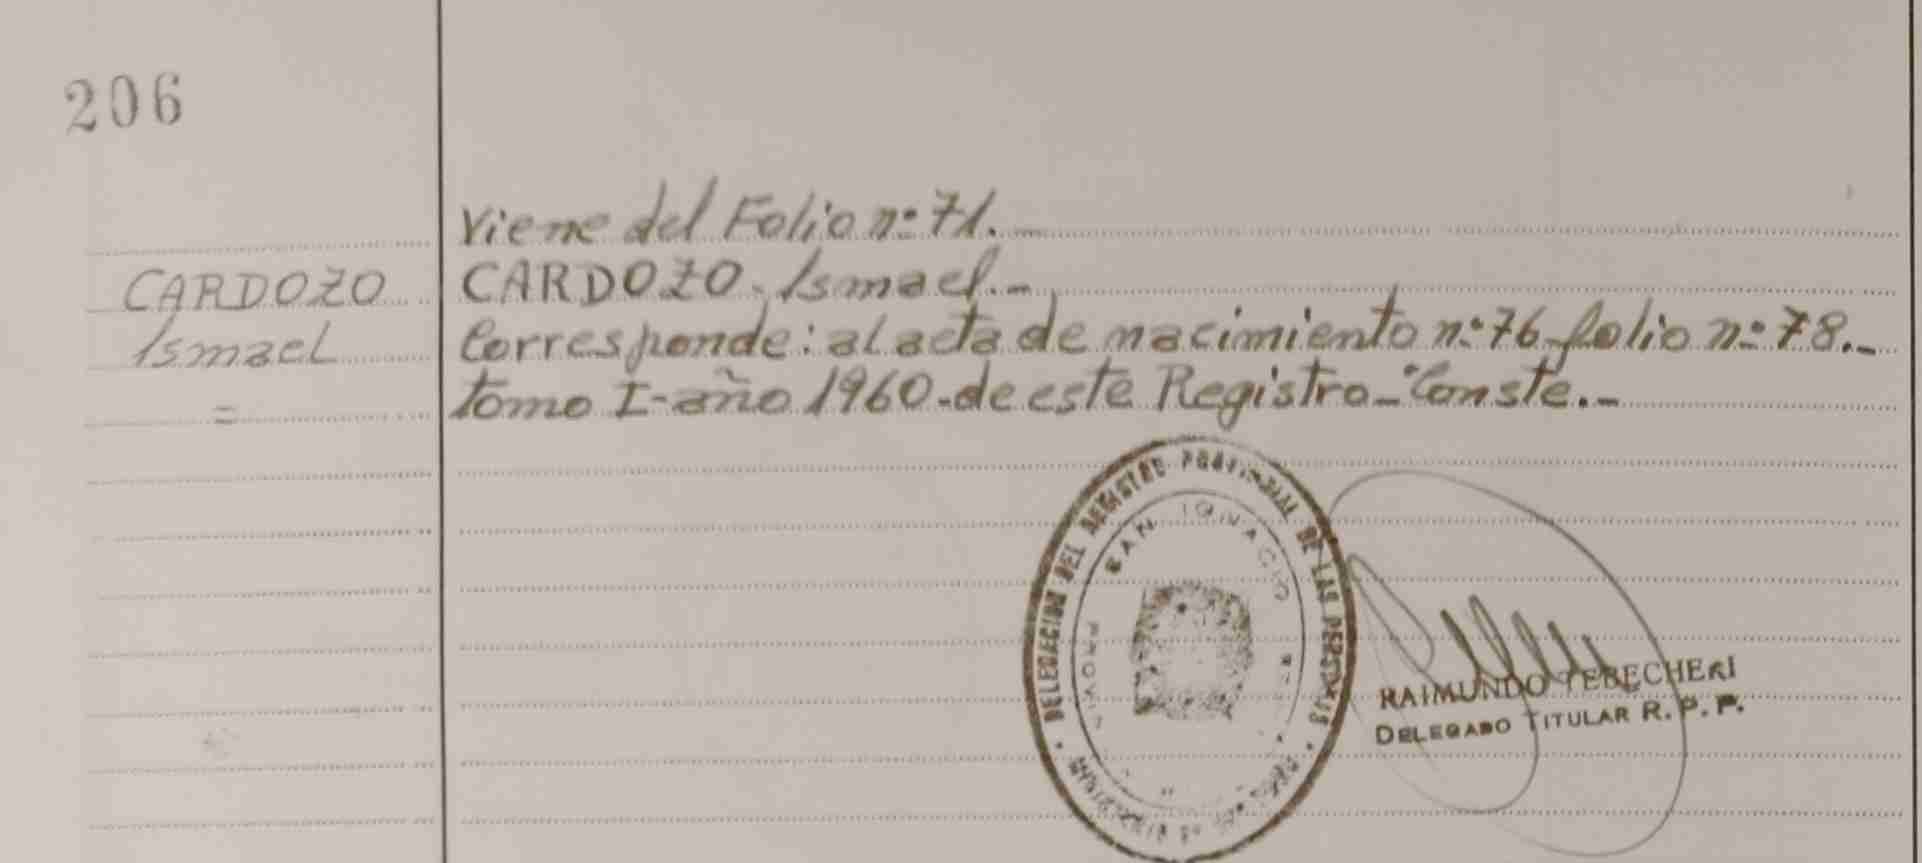 206
Viene del Folio nº 71.-
CARDOZO
Ismael
=
CARDOZO. Ismael.-
Corresponde: al acta de nacimiento nº 76-folio nº 78.-
tomo I-año 1960-de este Registro-Conste.-
DELEGACION DEL REGISTRO PROVINCIAL DE LAS PERSONAS
SAN IGNACIO
RAIMUNDO TEBECHERI
DELEGADO TITULAR R.P.P.